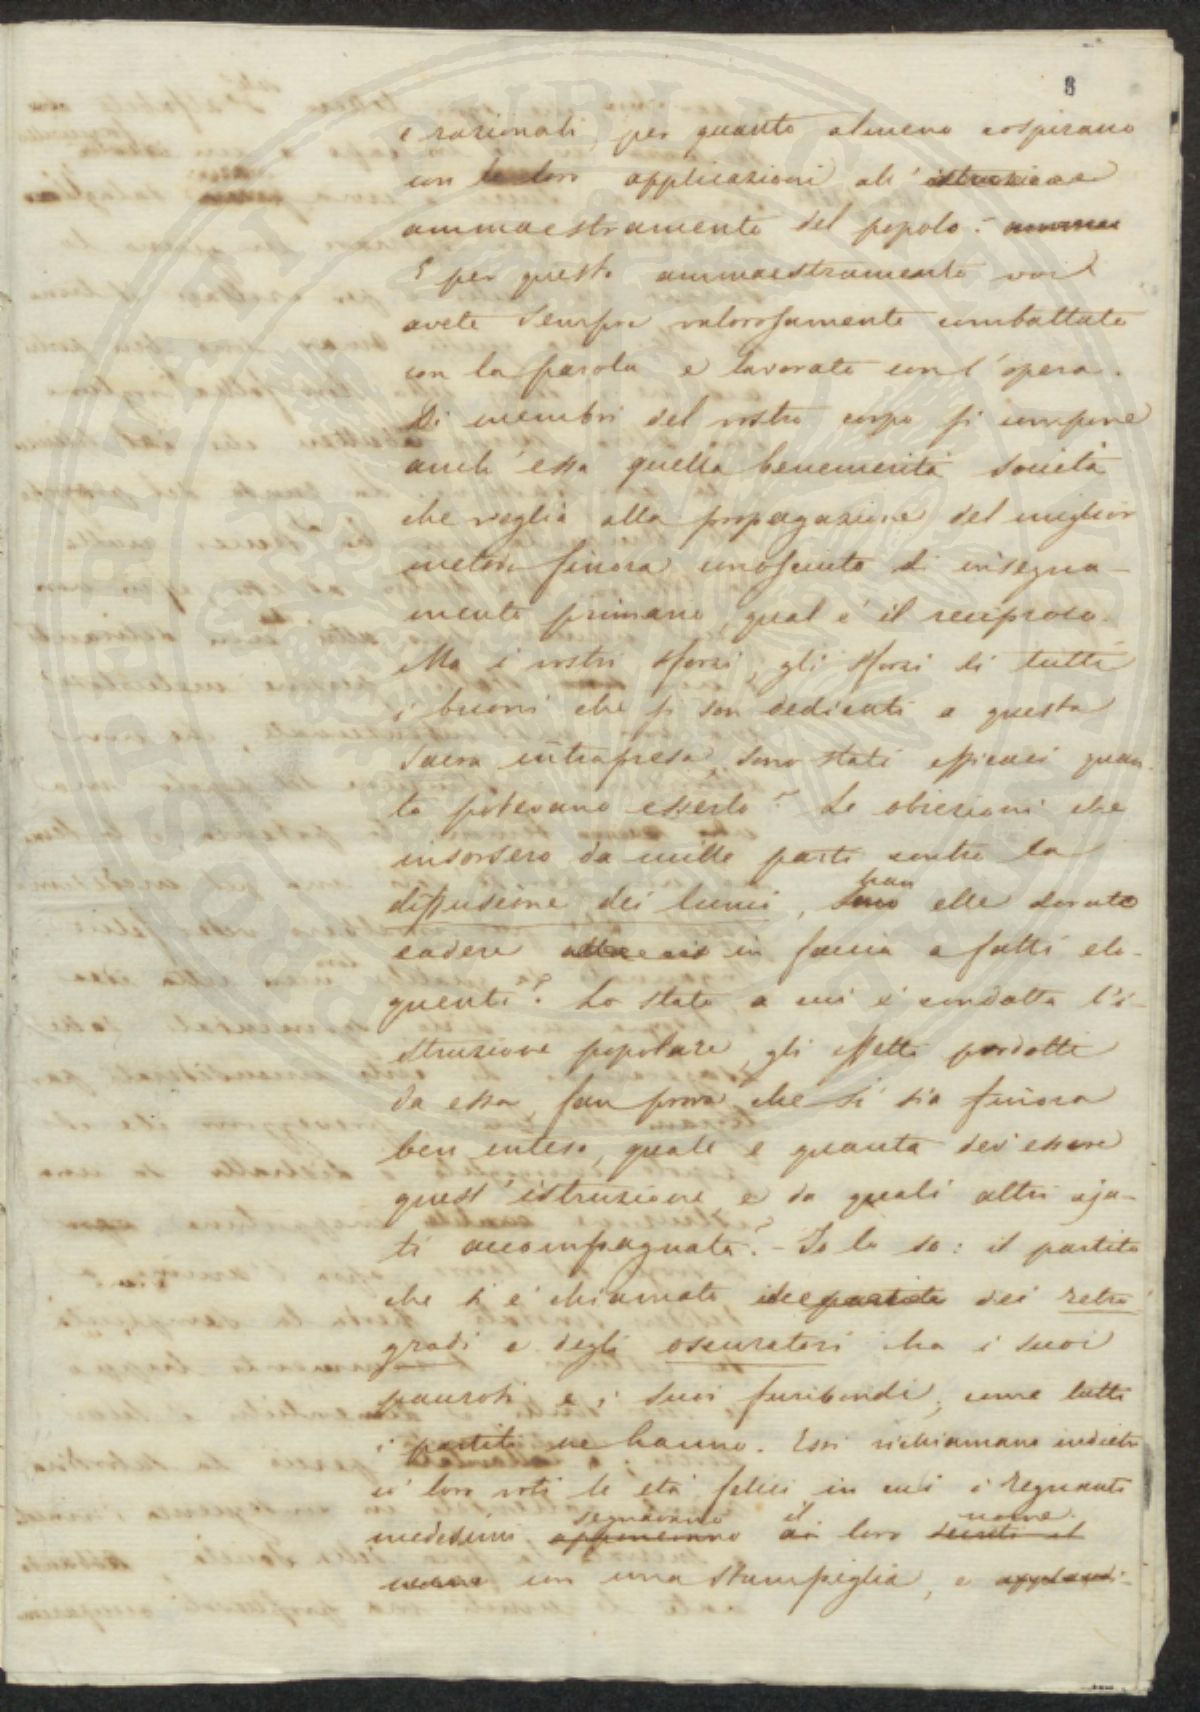 8
e razionali, per quanto almeno cospirano
con le loro applicazioni all' istruzione
ammaestramento del popolo. -
E per questo ammaestramento voi
avete sempre valorosamente combattuto
con la parola e lavorato con l'opera.
Di membri del vostro corpo si compone
anch' essa quella benemerita società
che veglia alla propagazione del miglior
metodo finora conosciuto di insegna-
mento primario, qual è il reciproco.
Ma i vostri sforzi, gli sforzi di tutti
i buoni che si son dedicati a questa
sacra intrapresa, sono stati efficaci quan-
to potevano esserlo? Le obiezioni che
insorsero da mille parti contro la
diffusione dei lumi, sono han elle dovuto
cadere in faccia a fatti elo-
quenti? Lo stato a cui è condotta l'i-
struzione popolare, gli effetti prodotti
da essa, fan prova che si sia finora
ben inteso, quale e quanta dev' essere
quest' istruzione, e da quali altri aju-
ti accompagnata? - Io lo so: il partito
che si è chiamato dei retro
gradi e degli oscuratori ha i suoi
paurosi e i suoi furibondi, come tutti
i partiti ne hanno. Essi richiamano indietro
co' loro voti le età felici in cui i regnanti
segnavano il nome
medesimi appunevano ai loro
nome con una stampiglia, e applaudi-